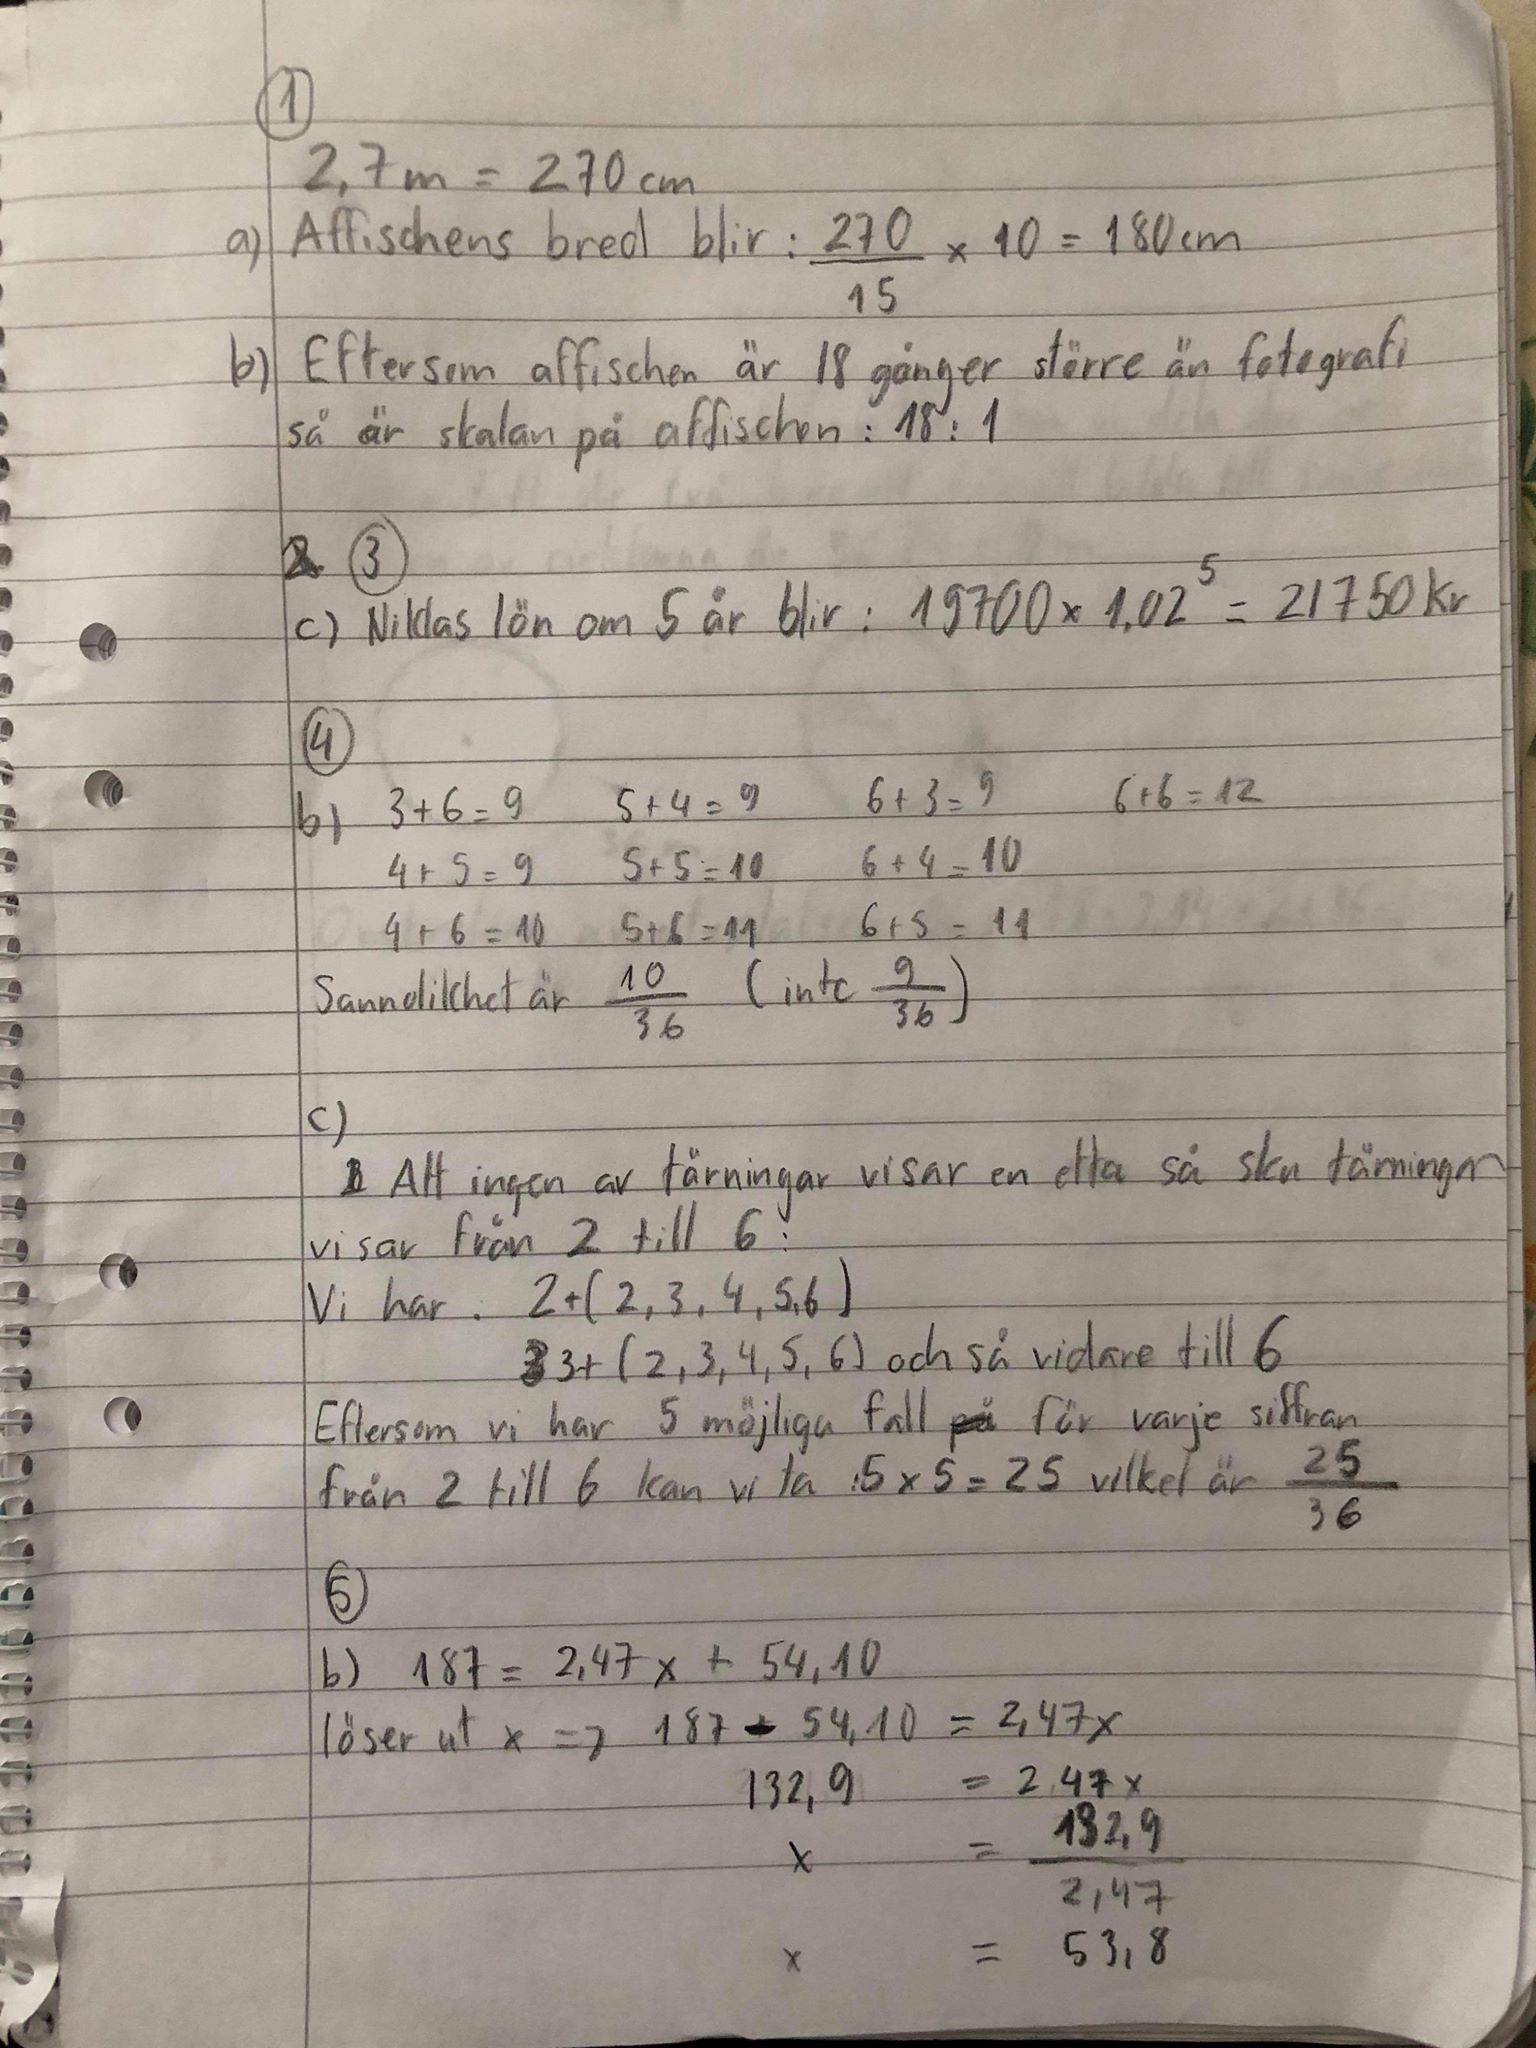 1
2,7m = 270cm
a) Affischens bred blir: 270/15 × 10 = 180cm
b) Eftersom affischen är 18 gånger större än fotografi
så är skalan på affischen: 18:1
3
c) Niklas lön om 5 år blir: 19700 × 1,02^5 = 21750 kr
4
b) 3+6=9 5+4=9 6+3=9 6+6=12
4+5=9 5+5=10 6+4=10
4+6=10 5+6=11 6+5=11
Sannolikhet är 10/36 (inte 9/36)
c)
Att ingen av tärningar visar en etta så ska tärningar
visar från 2 till 6:
Vi har. 2+(2,3,4,5,6)
3+(2,3,4,5,6) och så vidare till 6
Eftersom vi har 5 möjliga fall för varje siffran
från 2 till 6 kan vi ta :5×5=25 vilket är 25/36
5
b) 187 = 2,47x + 54,10
löser ut x => 187 - 54,10 = 2,47x
132,9 = 2,47x
x = 132,9/2,47
x = 53,8